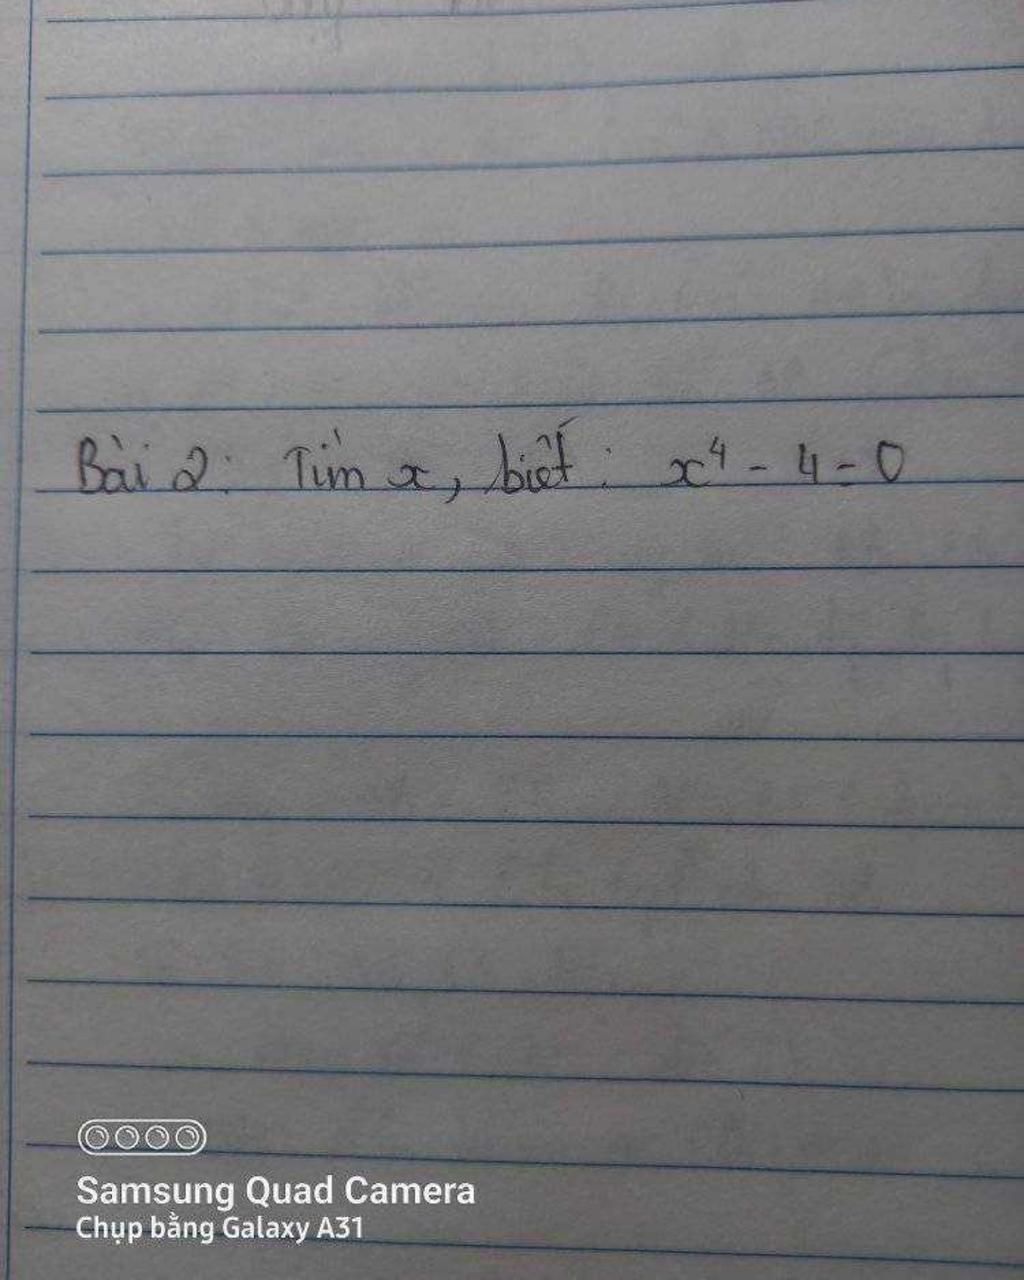 Bài 2: Tìm x, biết: x⁴ - 4 = 0
Samsung Quad Camera
Chụp bằng Galaxy A31